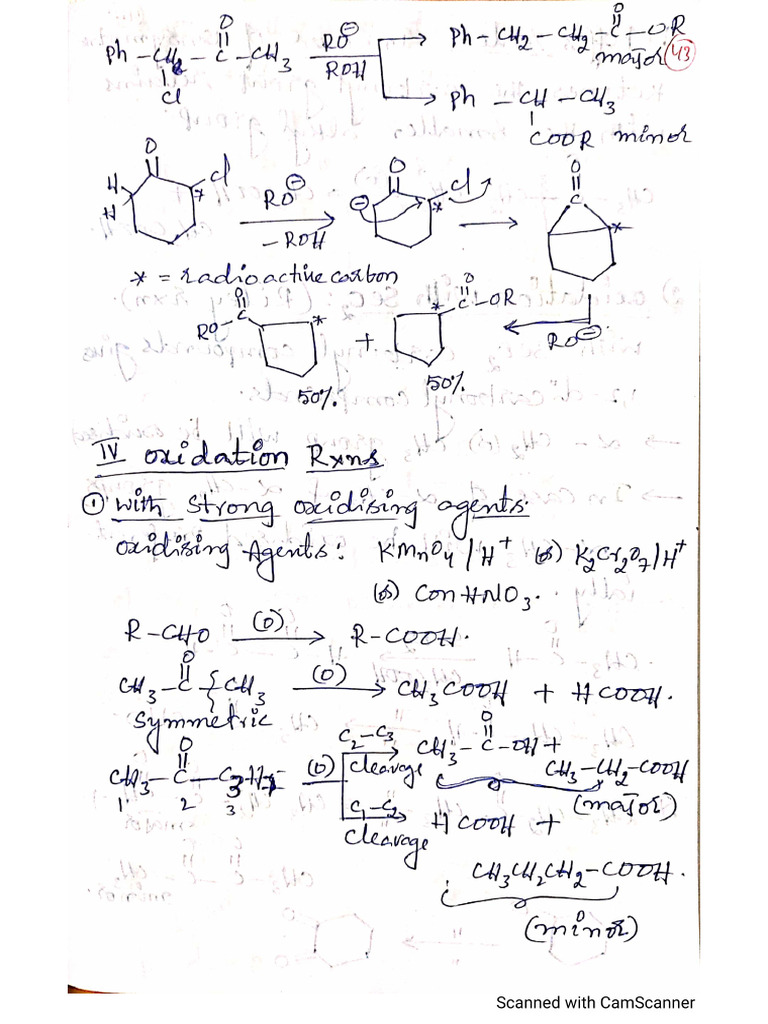 Ph – CH2 – C – CH3 RO⊖ ROH Ph – CH2 – CH2 – C – OR
O
Cl
O
major 43
Ph – CH – CH3
COOR minor
O H H Cl * RO⊖ – ROH O ⊖ Cl * O C *
* = radioactive carbon
RO – C O * + * C – OR O RO⊖
50% 50%
IV oxidation Rxns
① with strong oxidising agents:
oxidising Agents: KMnO4/H+ (or) K2Cr2O7/H+
(or) Con HNO3.
R – CHO (O) R – COOH.
O
CH3 – C – CH3 (O) CH3COOH + HCOOH.
Symmetric
O
CH3 – C – C3H7 (O) C2–C3 cleavage CH3 – C – OH +
O
1 2 3
CH3 – CH2 – COOH
(major)
C1–C2 cleavage HCOOH +
CH3CH2CH2 – COOH.
(minor)
Scanned with CamScanner